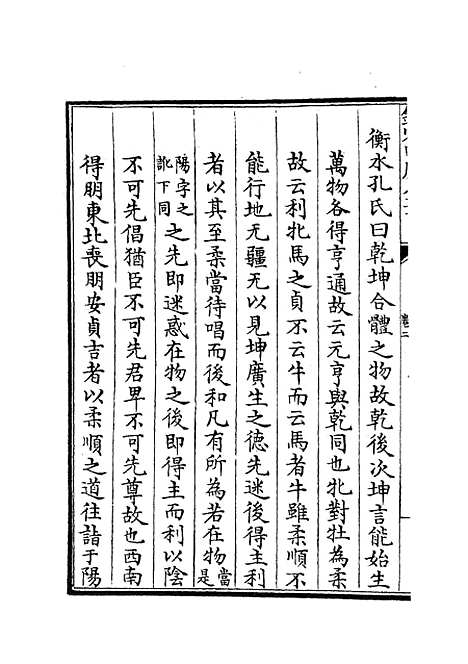 衡水孔氏曰乾坤合體之物故乾後次坤言能始生
萬物各得亨通故云元亨與乾同也牝對牡為柔
故云利牝馬之貞不云牛而云馬者牛雖柔順不
能行地无疆无以見坤廣生之德先迷後得主利
者以其至柔當待唱而後和凡有所為若在物當是
陽字之訛下同之先即迷惑在物之後即得主而利以陰
不可先倡猶臣不可先君卑不可先尊故也西南
得朋東北喪朋安貞吉者以柔順之道往詣于陽
卷二